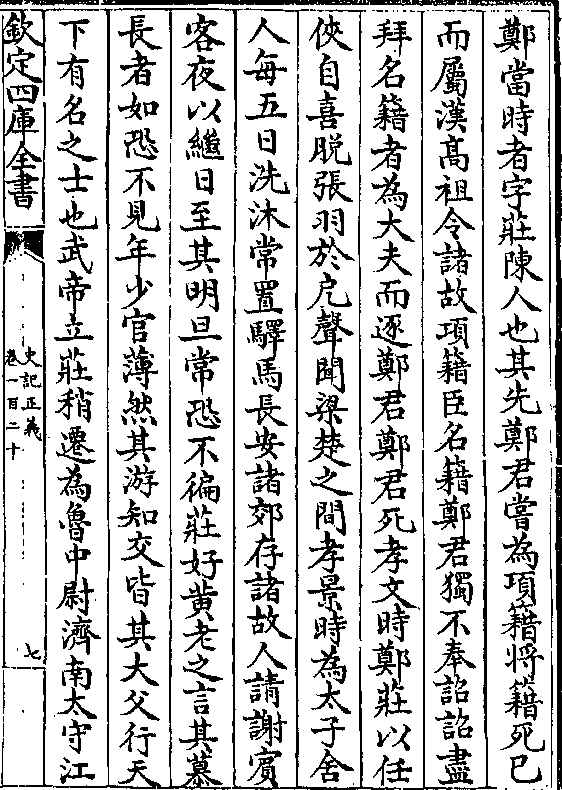 鄭當時者字莊陳人也其先鄭君嘗為項籍將籍死已
而屬漢髙祖令諸故項籍臣名籍鄭君獨不奉詔詔盡
拜名籍者為大夫而逐鄭君鄭君死孝文時鄭莊以任
俠自喜脱張羽於戹聲聞梁楚之間孝景時為太子舍
人每五日洗沐常置驛馬長安諸郊存諸故人請謝賓
客夜以繼日至其明旦常恐不徧莊好黄老之言其慕
長者如恐不見年少官薄然其游知交皆其大父行天
下有名之士也武帝立莊稍遷為魯中尉濟南太守江
欽定四庫全書
史記正義
卷一百二十
七